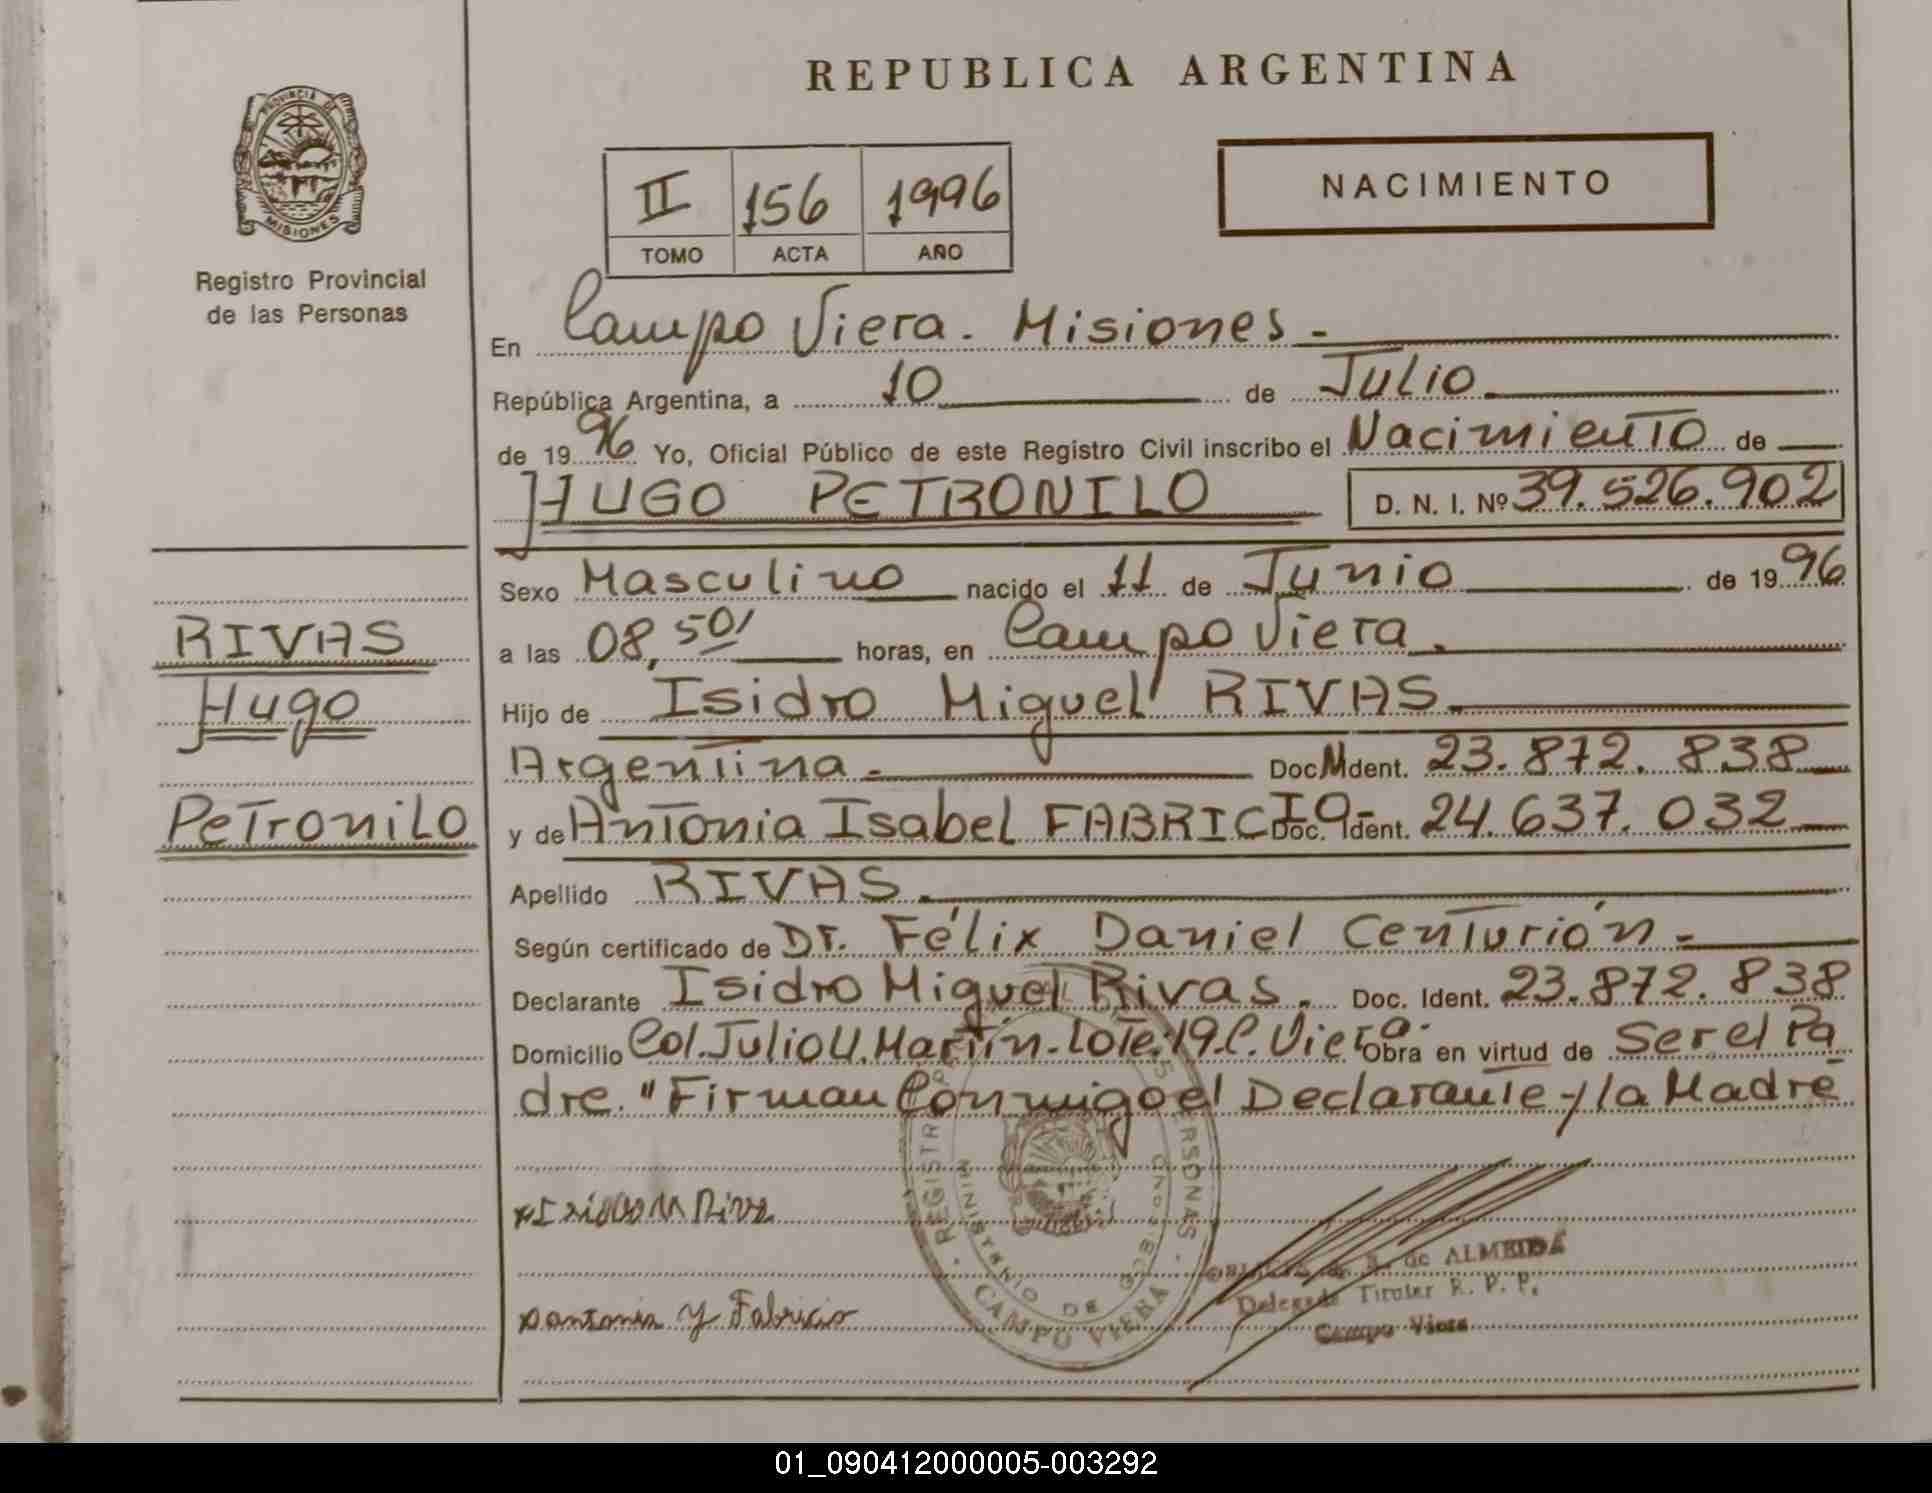 REPUBLICA ARGENTINA
PROVINCIA DE
MISIONES
Registro Provincial
de las Personas
II 156 1996
TOMO ACTA AÑO
NACIMIENTO
En Campo Viera. Misiones.-
República Argentina, a 10 de Julio
de 1996 Yo, Oficial Público de este Registro Civil inscribo el Nacimiento de
HUGO PETRONILO D. N. I. Nº 39.526.902
Sexo Masculino nacido el 11 de Junio de 1996
a las 08,50' horas, en Campo Viera.
Hijo de Isidro Miguel RIVAS.
Argentina.- Doc. Ident. 23.872.838
y de Antonia Isabel FABRICIO- Doc. Ident. 24.637.032
Apellido RIVAS.
Según certificado de Dr. Félix Daniel Centurión.-
Declarante Isidro Miguel Rivas. Doc. Ident. 23.872.838
Domicilio Col. Julio U. Martín-Lote:19.C. Viera. Obra en virtud de Ser el Pa
dre. "Firman Conmigo el Declarante y la Madre
RIVAS
Hugo
Petronilo
Antonia Y Fabricio
REGISTRO PERSONAS
MINISTERIO DE GOBIERNO
CAMPO VIERA
de ALMEIDA
Delegada Titular R. P. P.
Campo Viera
01_090412000005-003292